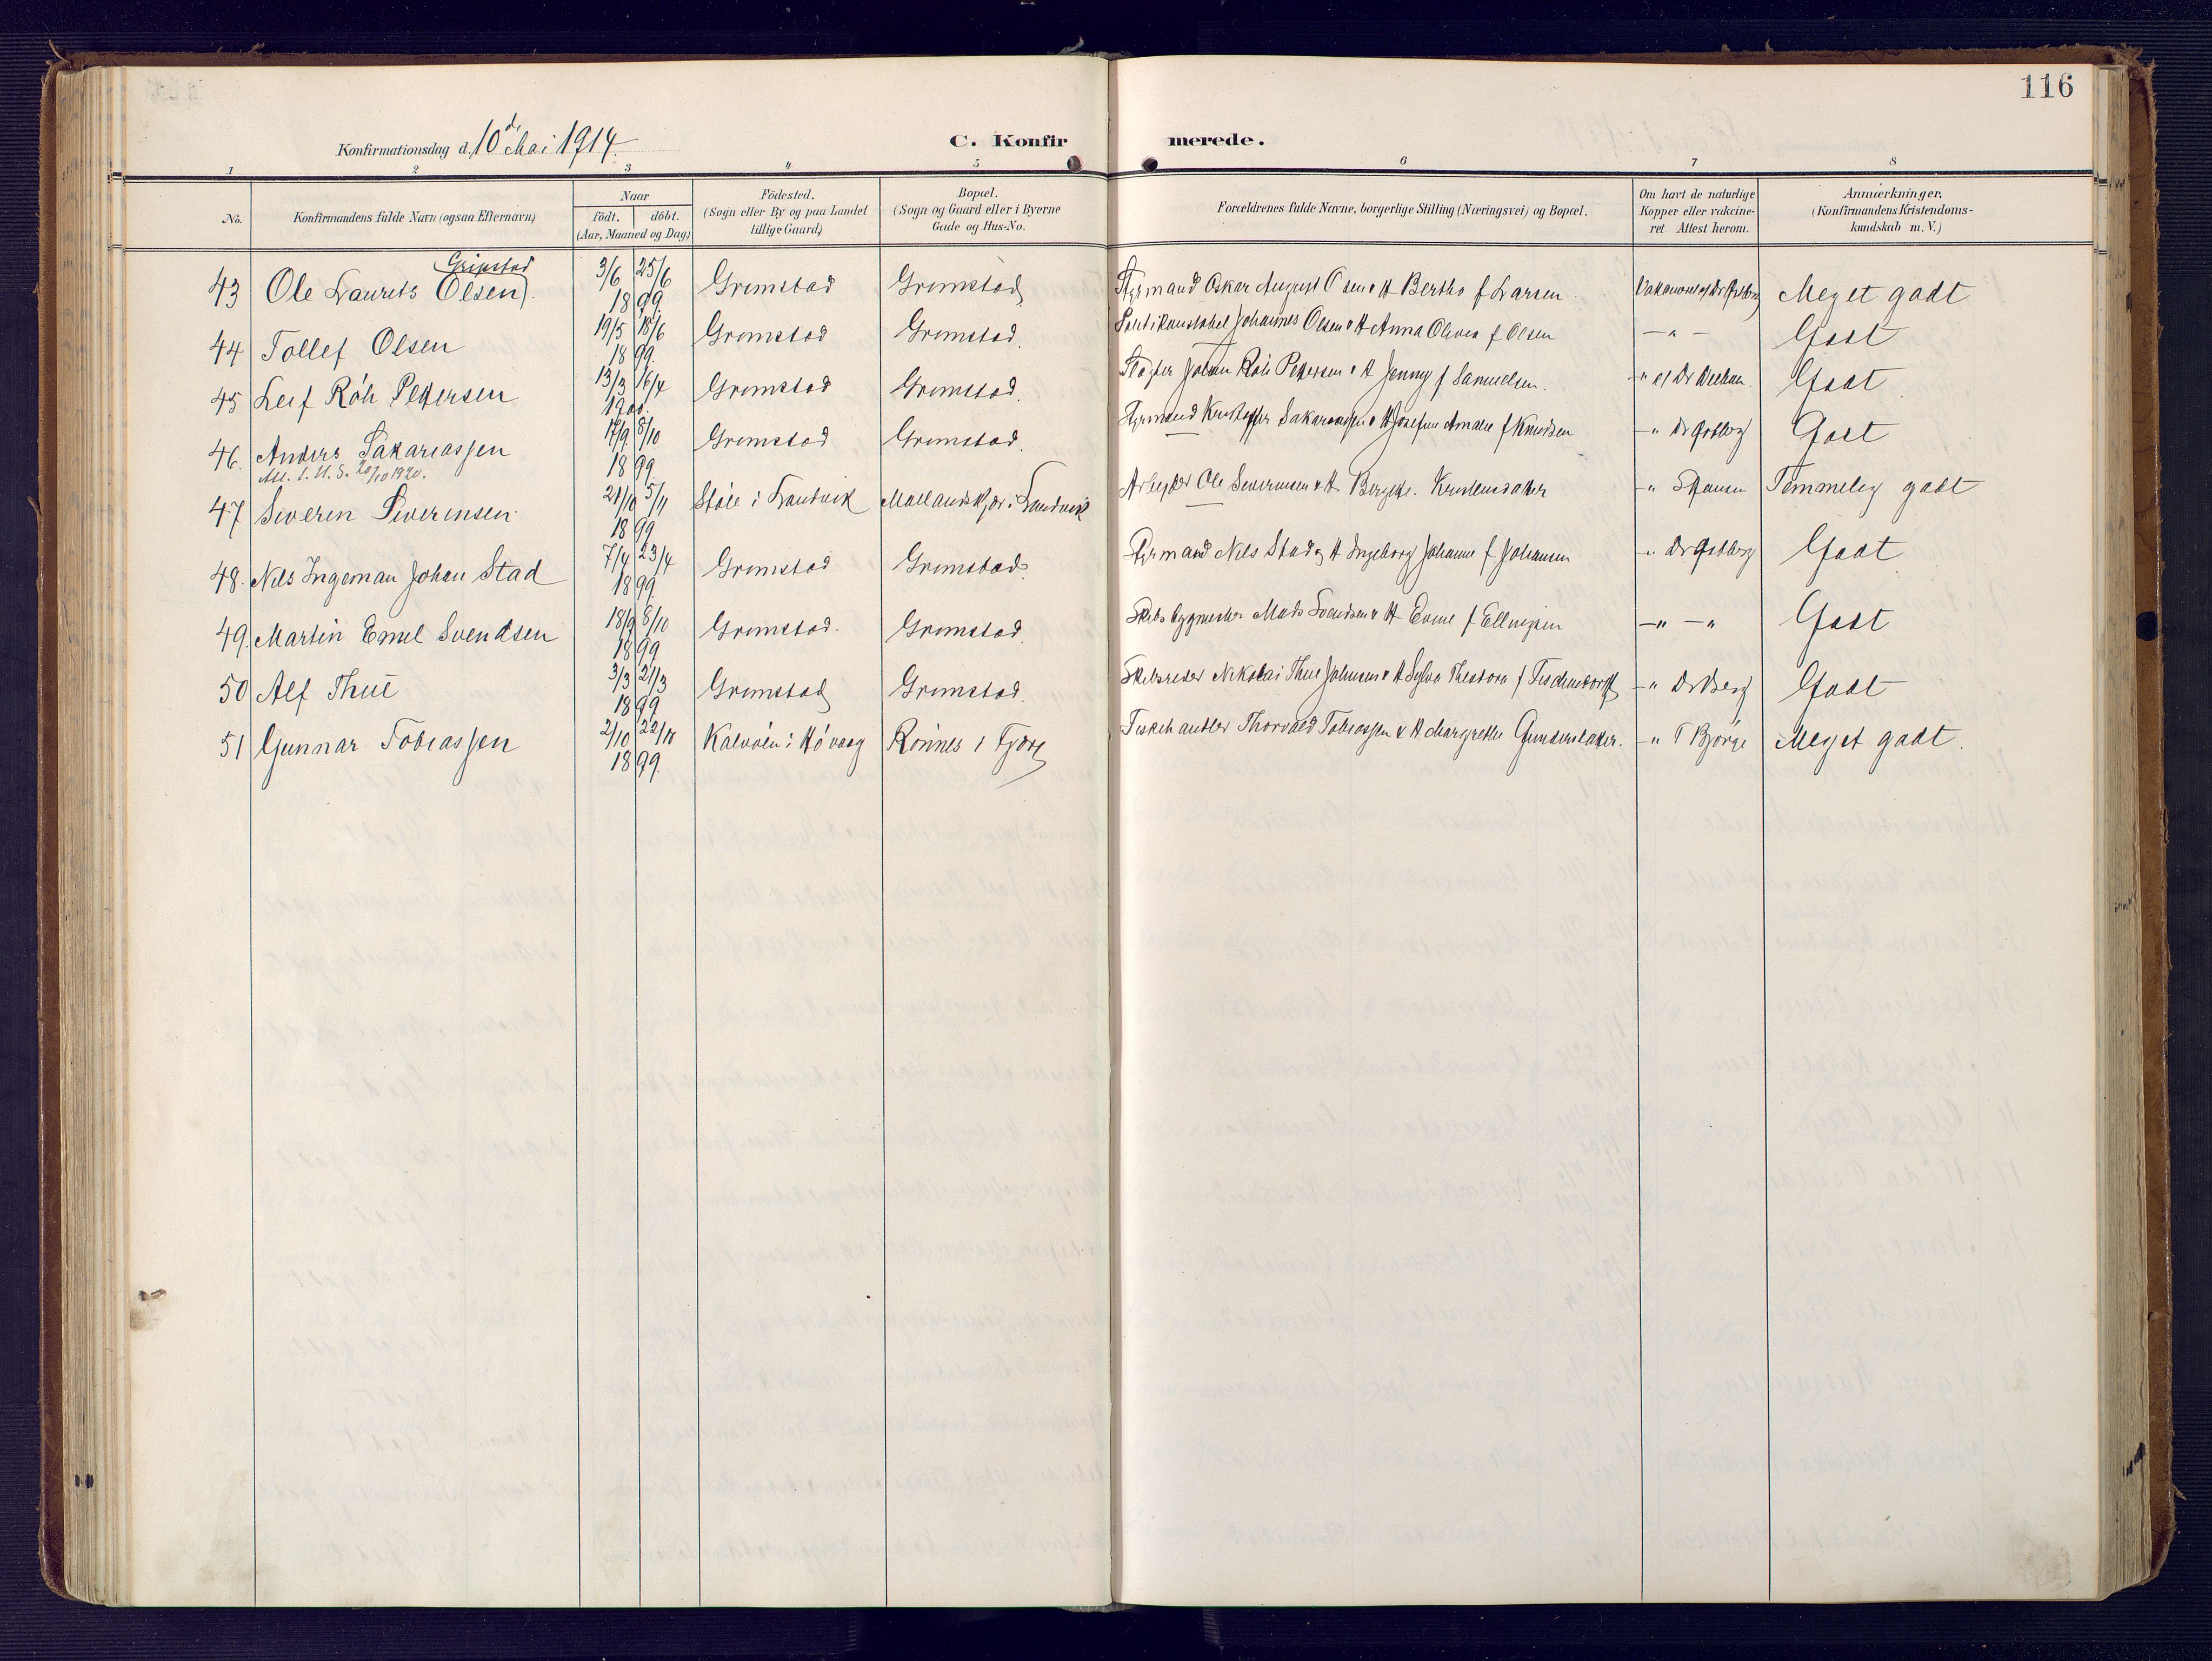 116
Konfirmationsdag d. 10d Mai 1914.
C. Konfir merede.
1 2 3 4 5 6 7 8
No. Konfirmandens fulde Navn (ogsaa Efternavn) Naar födt. döbt. (Aar, Maaned og Dag) Födested. (Sogn eller By og paa Landet tillige Gaard) Bopæl. (Sogn og Gaard eller i Byerne Gade og Hus-No. Forældrenes fulde Navne, borgerlige Stilling (Næringsvei) og Bopæl. Om havt de naturlige Kopper eller vakcineret. Attest herom. Anmærkninger, (Konfirmandens Kristendomskundskab m. V.)
Gripstad
43 Ole Laurits Olsen). 3/6 25/6 1899 Grimstad Grimstad Styrmand Oskar August Olsen & H Bertha f Larsen Meget godt
44 Tollef Olsen 19/5 18/6 1899. Grimstad Grimstad. Johannes Olsen & H Anna Olivia f Olsen — " — Godt
45 Leif Röh Pettersen 13/3 16/4 1900. Grimstad Grimstad. Johan Röh Pettersen & H Jenny f Samuelsen. Godt
46. Anders Sakariassen 17/9 8/10 1899 Grimstad Grimstad. Styrmand Kristoffer Sakariassen & H Josefine Amalie f Knudsen Godt
Att. t. U.S. 20/10 1920.
47 Severin Severinsen 21/10 5/11 1899 Støle i Landvik Mollandskjær i Landvik Arbejder Ole Severinsen & H Temmelig godt
48. Nils Ingeman Johan Stad 7/4 23/4 1899 Grimstad Grimstad. Styrmand Nils Stad & H Ingeborg Johanne f Johansen Godt
49. Martin Emil Svendsen 18/9 8/10 1899 Grimstad. Grimstad. Skibsbygmester Mads Svendsen & H f Ellingsen — " — " Godt
50 Alf Thue 3/3 21/3 1899 Grimstad Grimstad. Skibsreder Nikolai Thue Johnsen & H Sylva Theodora f Tischendorff — " Dr Berg Godt
51 Gunnar Tobiassen 2/10 22/10 1899. Kalvöen i Hövaag Rönnes i Fjære Fiskehandler Thorvald Tobiassen & H Margrethe Gundersdatter. — " T Bjorge Meget godt.